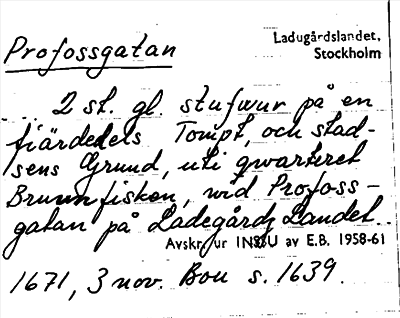 Profossgatan
Ladugårdslandet,
Stockholm
2 st. gl. stufwur på en
fiärdedels Tompt, och stad-
sens Grund, uti qwarteret
Brunnfisken, wid Profoss-
gatan på Ladegårdz Landet.
Avskr. ur INSSU av E.B. 1958-61
1671, 3 nov. Bou s. 1639.